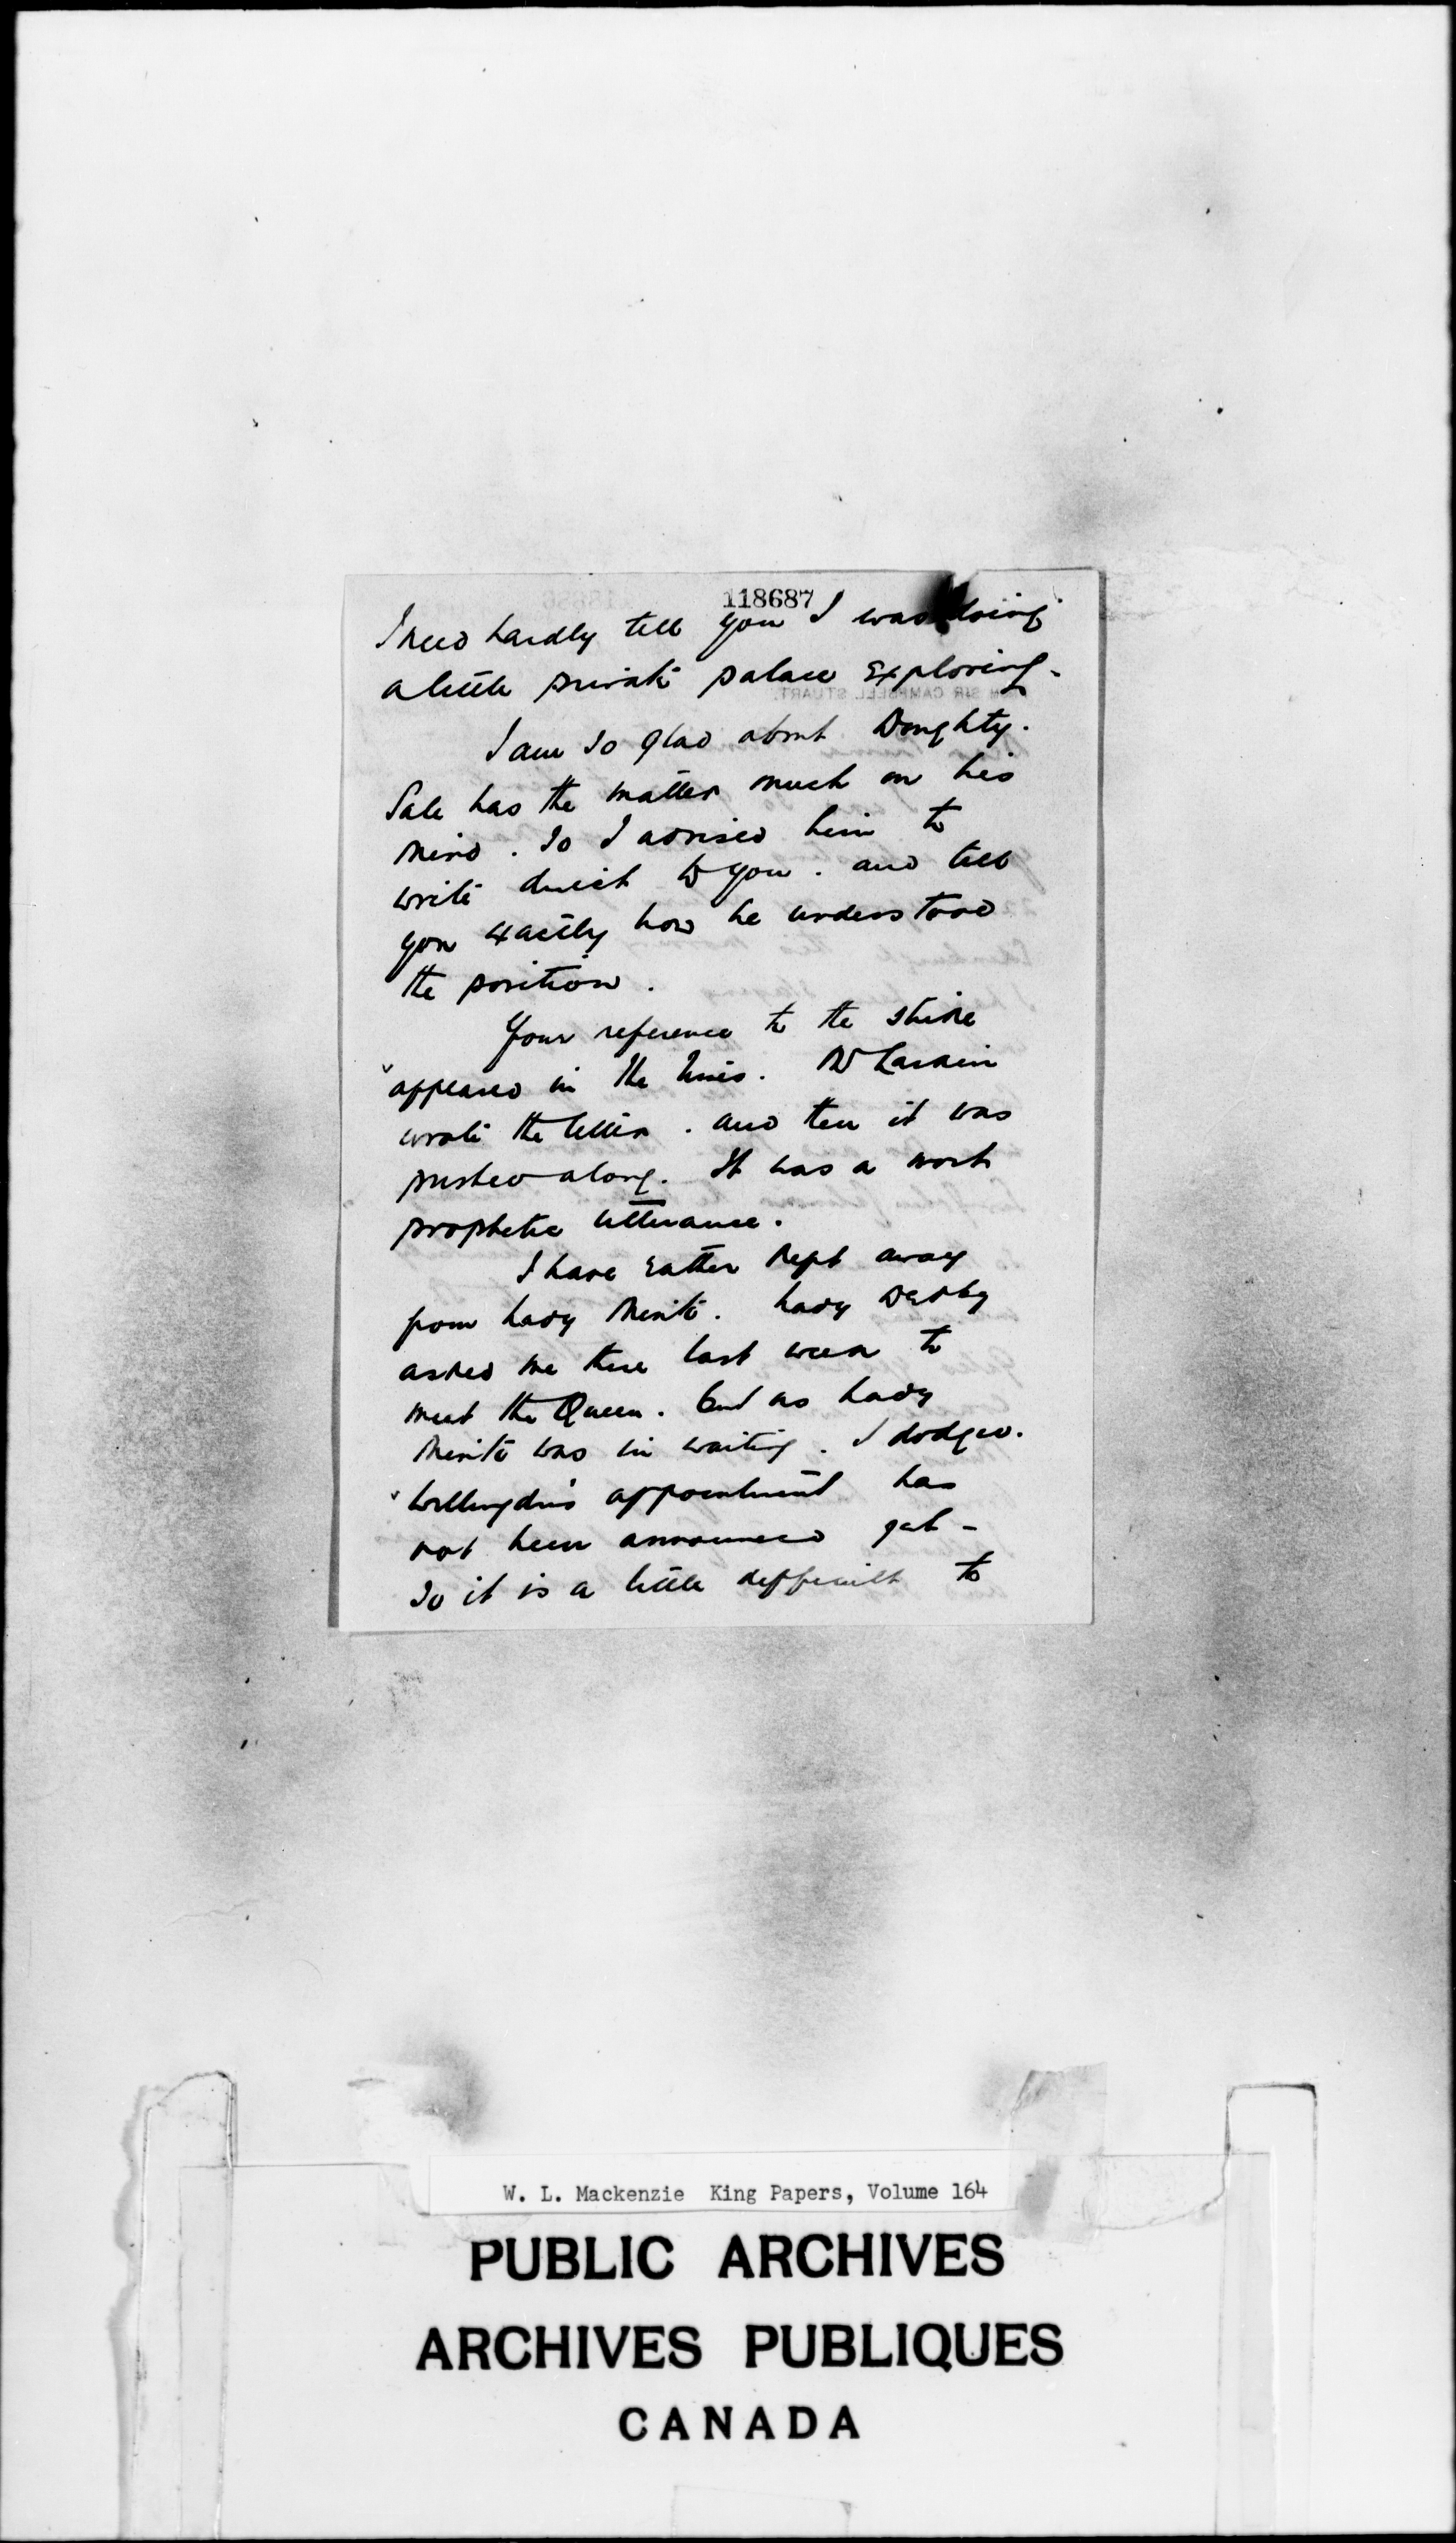 118687
I need hardly tell you I was doing
a little private palace exploring.
I am so glad about Doughty.
Sale has the matter much on his
mind. So I advised him to
write direct to you. and tell
you exactly how he understood
the position.
Your reference to the strike
appeared in the Times. Mr Larkin
wrote the letter. and then it was
pushed along. It was a most
prophetic utterance.
I have rather kept away
from Lady Minto. Lady Derby
asked me there last week to
meet the Queen. but as Lady
Minto was in waiting. I dodged.
Willingdon's appointment has
not been announced yet -
So it is a little difficult to
W. L. Mackenzie King Papers, Volume 164
PUBLIC ARCHIVES
ARCHIVES PUBLIQUES
CANADA